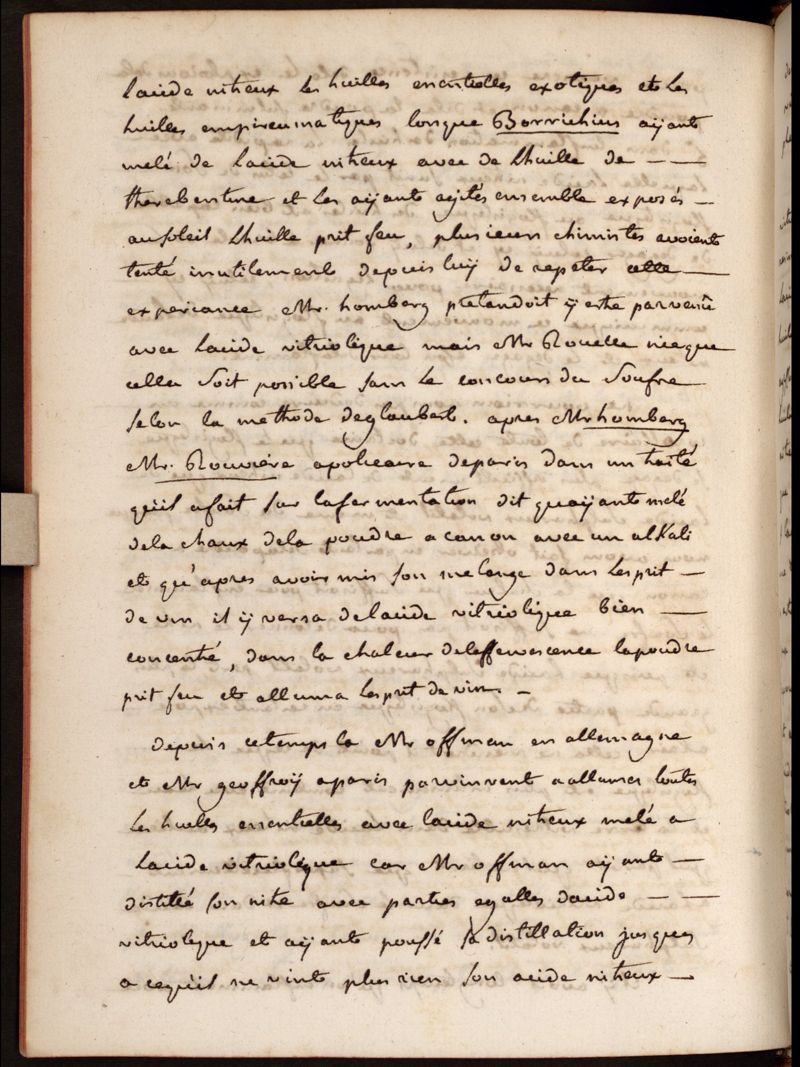 lacide nitreux les huilles essentielles exotiques et les
huilles empireumatiques lorsque Borrichius aÿant
melé de lacide nitreux avec de Lhuille de — —
therebentine et les aÿant agités ensemble exposés —
au soleil Lhuille prit feu, plusieurs chimistes avoient
tenté inutilement depuis luÿ de repeter cette —
experiance Mr. homberg pretendoit ÿ estre parvenü
avec lacide vitriolique mais Mr Rouelle nie que
cella soit possible sans le concours du soufre
selon la methode deglaubert. apres Mr homberg
Mr. Rouviere apoticaire deparis dans un traité
qu'il a fait sur lafermentation dit quaÿant melé
dela chaux dela poudre a canon avec un alkali
et qu'apres avoir mis son melange dans lesprit —
de vin il ÿ versa delacide vitriolique bien —
concentré, dans la chaleur deleffervescence lapoudre
prit feu et alluma lesprit de vin. —
depuis cetemps la Mr offman en allemagne
et Mr geoffroÿ aparis parvinrent a allumer toutes
les huilles essentielles avec lacide nitreux melé a
lacide vitriolique car Mr offman aÿant —
distillé son nitre avec parties egalles dacide — —
vitriolique et aÿant poussé la distillation jusques
a cequ'il ne vint plus rien son acide nitreux —